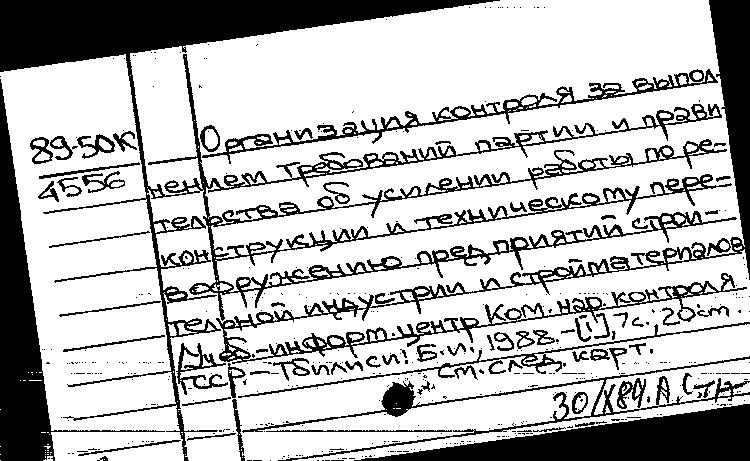 89-50К
4556
Организация контроля за выпол-
нением требований партии и прави-
тельства об усилении работы по ре-
конструкции и техническому пере-
вооружению предприятий строи-
тельной индустрии и стройматериалов
/Учеб.-информ. центр Ком. нар. контроля
ГССР. - Тбилиси: Б.и., 1988. - [1], 7 с.; 20 см.
См. след. карт.
30/X89г. А.